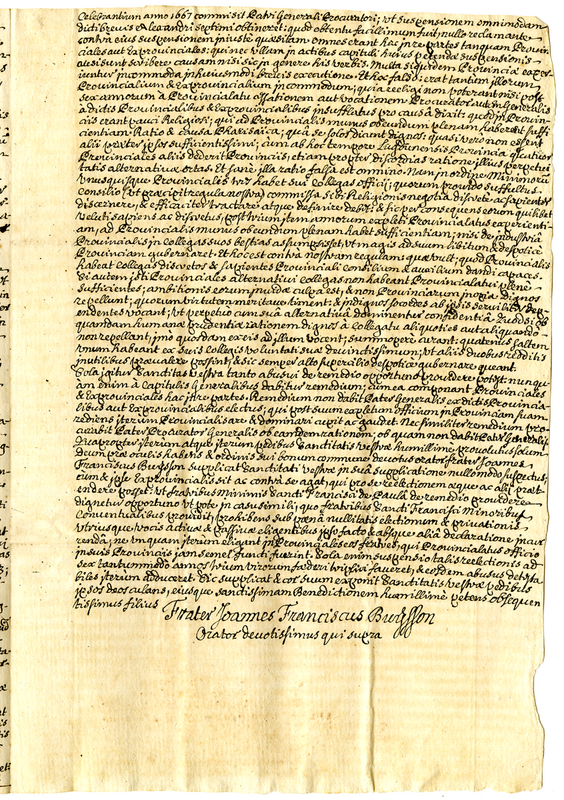 Celebrantium anno 1667 commisit Patri Generali Procuratori; vt suspensionem omnimodam
dicti brevis Alexandri septimi obtineret: quod obtentu facillimum fuit, nullo reclamante
contra eius suspensionem injuste quaesitam omnes erant hac in re partes tanquam Provin
ciales aut exprovinciales: qui nec vllam in actibus capituli huius petendae suspensionis
ausi sunt scribere causam nisi sic in genere his verbis. Multa siquidem Provinciae exper
iuntur incommoda in huiusmodi brevis executione. Et hoc falso: erat tantum illorum
Provincialium & Exprovincialium incommodum; quia reeligi non poterant nisi post
sex annorum à Provincialatu cessationem aut vocationem Procurator autem generalis
à dictis Provincialibus & exprovincialibus insufflatus pro causa dixit: quod in Provin
ciis erant pauci Religiosi, qui ad Provincialis munus obeundum plenam haberent suffi
cientiam. Ratio & causa Pharisaica, qua se solos dicunt dignos quasi vero non essent
alii praeter ipsos sufficientissimi, cum ab hoc tempore Lugdunensis Provincia quatuor
Provinciales aliis dederit Provinciis; etiam propter discordias ratione illius perpetui
tatis alternativae ortas. Et sane illa ratio falsa est omnino. Nam in ordine Minimorum
vnusquisque Provincialis tres habet sui collegas officii; quorum provido suffultus
consilio (vt praecipit regula nostra) commissa sibi Religionis negotia discrete ac sapienter
discernere, & efficaciter tractare atque definire debet: & hic per consequens eorum quilibet
veluti sapiens ac discretus, post trium item annorum expleti Provincialatus experienti
am, ad Provincialis munus obeundum plenam habet sufficientiam; nisi de industria
Provincialis in collegas suos bestias assumpsisset, vt magis ad suum libitum & despotice
Provinciam gubernaret. Et hoc est contra nostram regulam: quae vult, quod Provincialis
habeat collegas discretos & sapientes Provinciali consilium & auxilium dandi capaces.
Si autem isti Provinciales alternativi collegas non habeant Provincialatui plene
sufficientes; ambitionis eorum invidae culpa est, & non Provinciarum in qua dignos
repellunt; quorum virtutem meritaue timent: & indignos sicut de ab ipsis serviliter de
endentes vocant; vt perpetuo cum sua alternativa dominentur confidentia
quandam humanae prudentiae rationem dignos à collegatu aliquoties aut aliquando
non repellant; imo quosdam ex eis ad illum vocent; summopere curant: quatenus saltem
vnum habeant ex suis Collegis voluntati suae devinctissimum; vt aliis duobus redditis
inutilibus praevalere possint; & sic semper alto supercilio despotice gubernare queant.
Sola igitur Sanctitas Vestra tanto abusui de remedio opportuno providere potest: nunqu
am enim à Capitulis Generalibus dabitur remedium; cum ea componant Provinciales
& Exprovinciales hac in re partes. Remedium non dabit Pater Generalis ex dictis Provincia
libus aut Exprovincialibus electus; qui post suum expletum officium in Provinciam suam
rediens iterum Provincialisare & dominari cupit ac gaudet. Nec similiter remedium pro
curabit Pater Procurator Generalis ob eandem rationem; ob quam non dabit Pater Generalis
Quapropter iterum atque iterum pedibus Sanctitatis Vestrae humilime provolutus solum
deum prae oculis habens & ordinis sui bonum commune devotus orator frater Joannes
Franciscus Buisson supplicat Sanctitati Vestrae in sua supplicatione nullo modo suspectus;
cum & ipse Exprovincialis sit ac contra se agat; qui pro se reelectionem aeque ac alii praet
endere posset: vt fratribus Minimis Sancti Francisci de Paula de remedio providere
dignetur opportuno: vt pote in casu simili; quo fratribus Sancti Francisci Minoribus
Conventualibus providit; prohibens sub poena nullitatis electionum & privationis
vtriusque vocis activae & passivae eligentibus ipso facto & absque alia declaratione incur
renda; ne vnquam iterum eligant in Provinciales eos fratres; qui Provincialatus officio
in suis Provinciis jam semel functi fuerint. Sola enim suspensio talis reelectionis ad
sex tantummodo annos trium virorum foederi triplici faveret, & eosdem abusus detesta
biles iterum adduceret. Sic supplicat & cor suum exponit Sanctitatis Vestrae pedibus
ipsos deosculans; eiusque sanctissimam Benedictionem humillime petens obsequen
tissimus filius
Frater Joannes Franciscus Buisson
Orator devotissimus qui supra